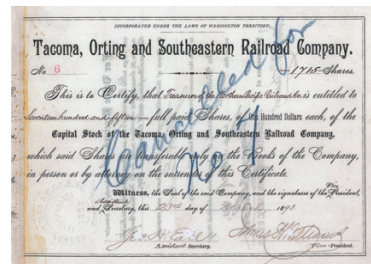 INCORPORATED UNDER THE LAWS OF WASHINGTON TERRITORY.
Tacoma, Orting and Southeastern Railroad Company.
No 6 1715 Shares
This is to Certify, that Treasurer of the Northern Pacific Railroad Co. is entitled to
Seventeen hundred and fifteen full paid Shares, of One Hundred Dollars each, of the
Capital Stock of the Tacoma, Orting and Southeastern Railroad Company,
which said Shares are transferable only on the Books of the Company,
in person or by attorney on the surrender of this Certificate.
Witness, the Seal of the said Company, and the signatures of the Vice President,
Assistant
and Secretary, this day of 189
Assistant Secretary. Vice-President.
Cancelled for